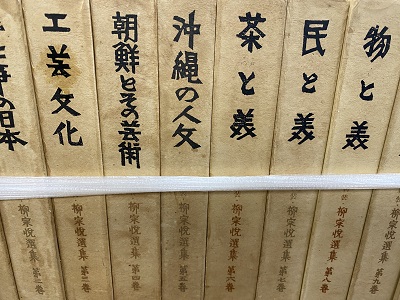 事の日本
柳宗悦選集 第二巻
工芸文化
柳宗悦選集 第三巻
朝鮮とその芸術
柳宗悦選集 第四巻
沖縄の人文
柳宗悦選集 第五巻
茶と美
柳宗悦選集 第六巻
民と美
柳宗悦選集 第八巻
物と美
柳宗悦選集 第九巻